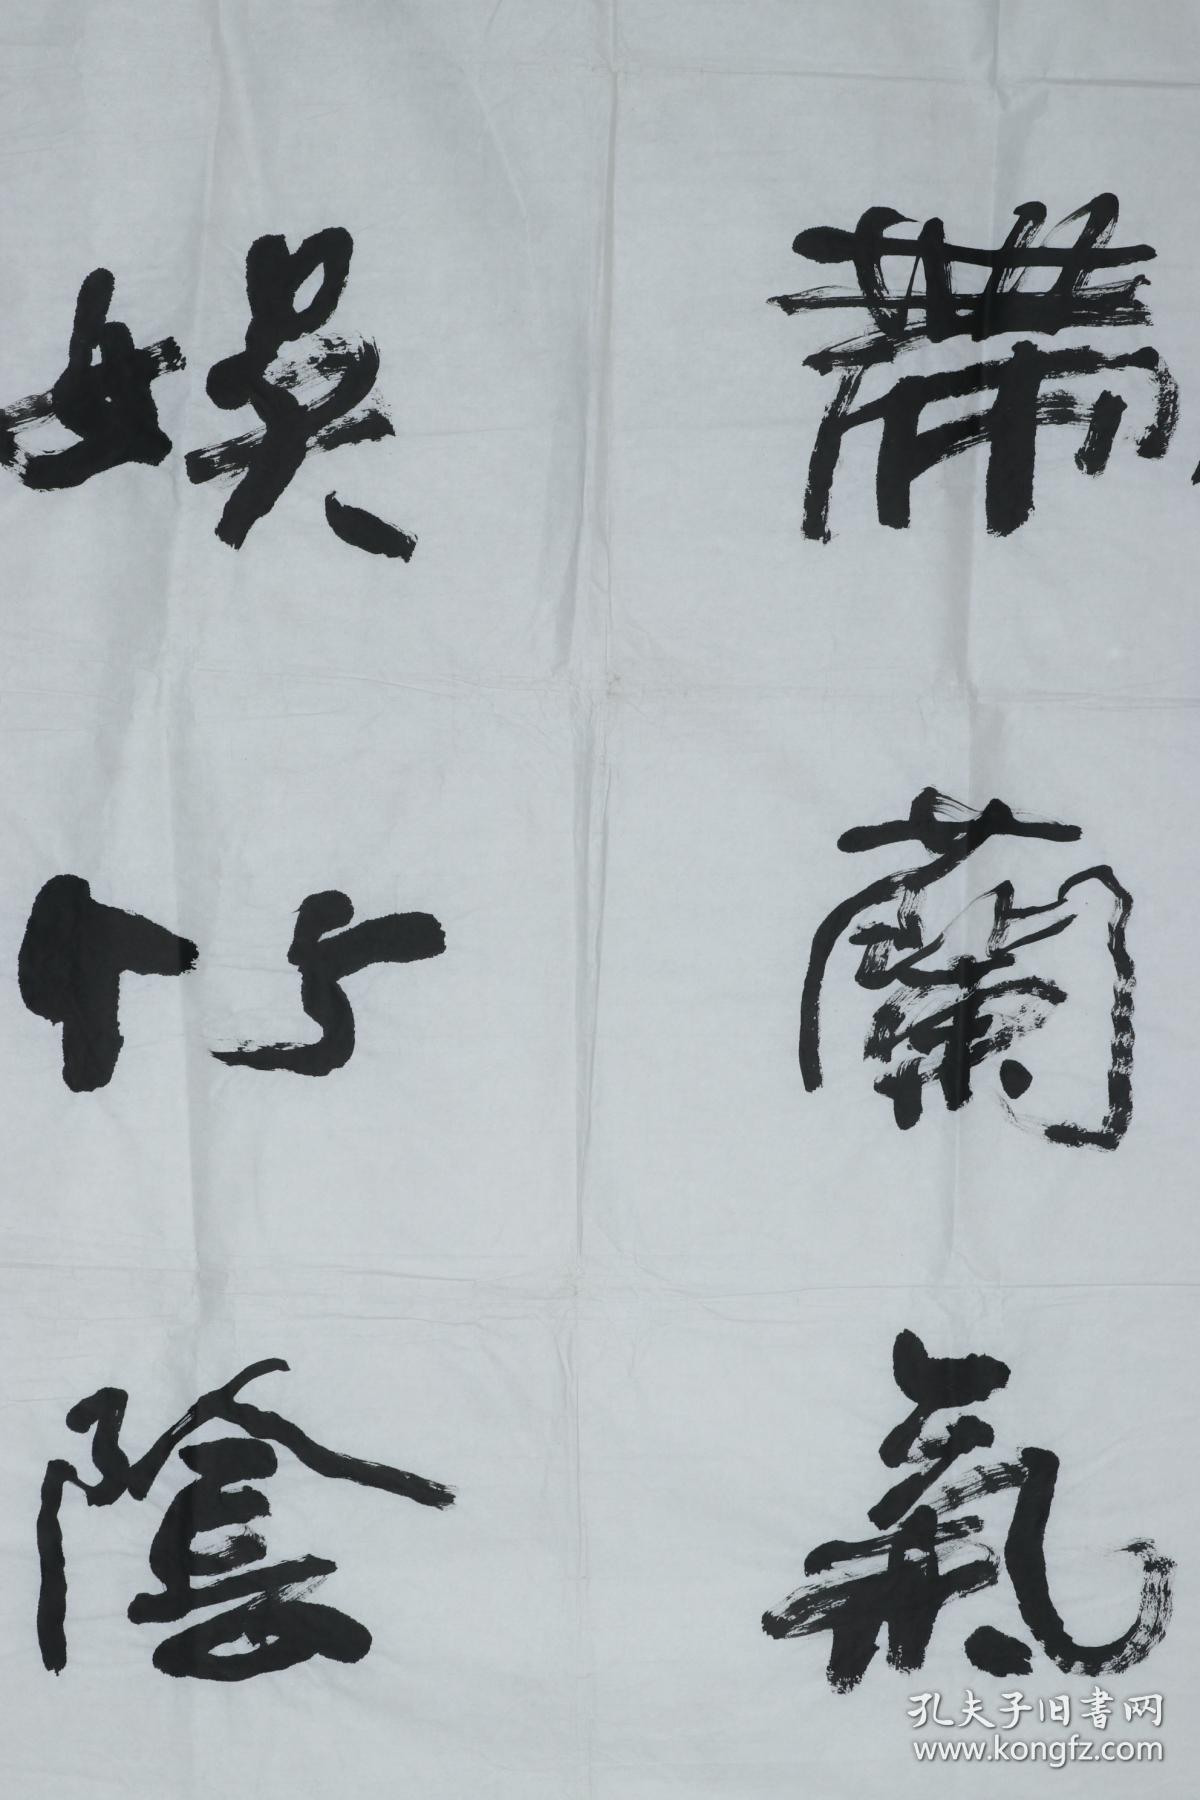 帶蘭氣
娱竹陰
孔夫子旧書网
www.kongfz.com